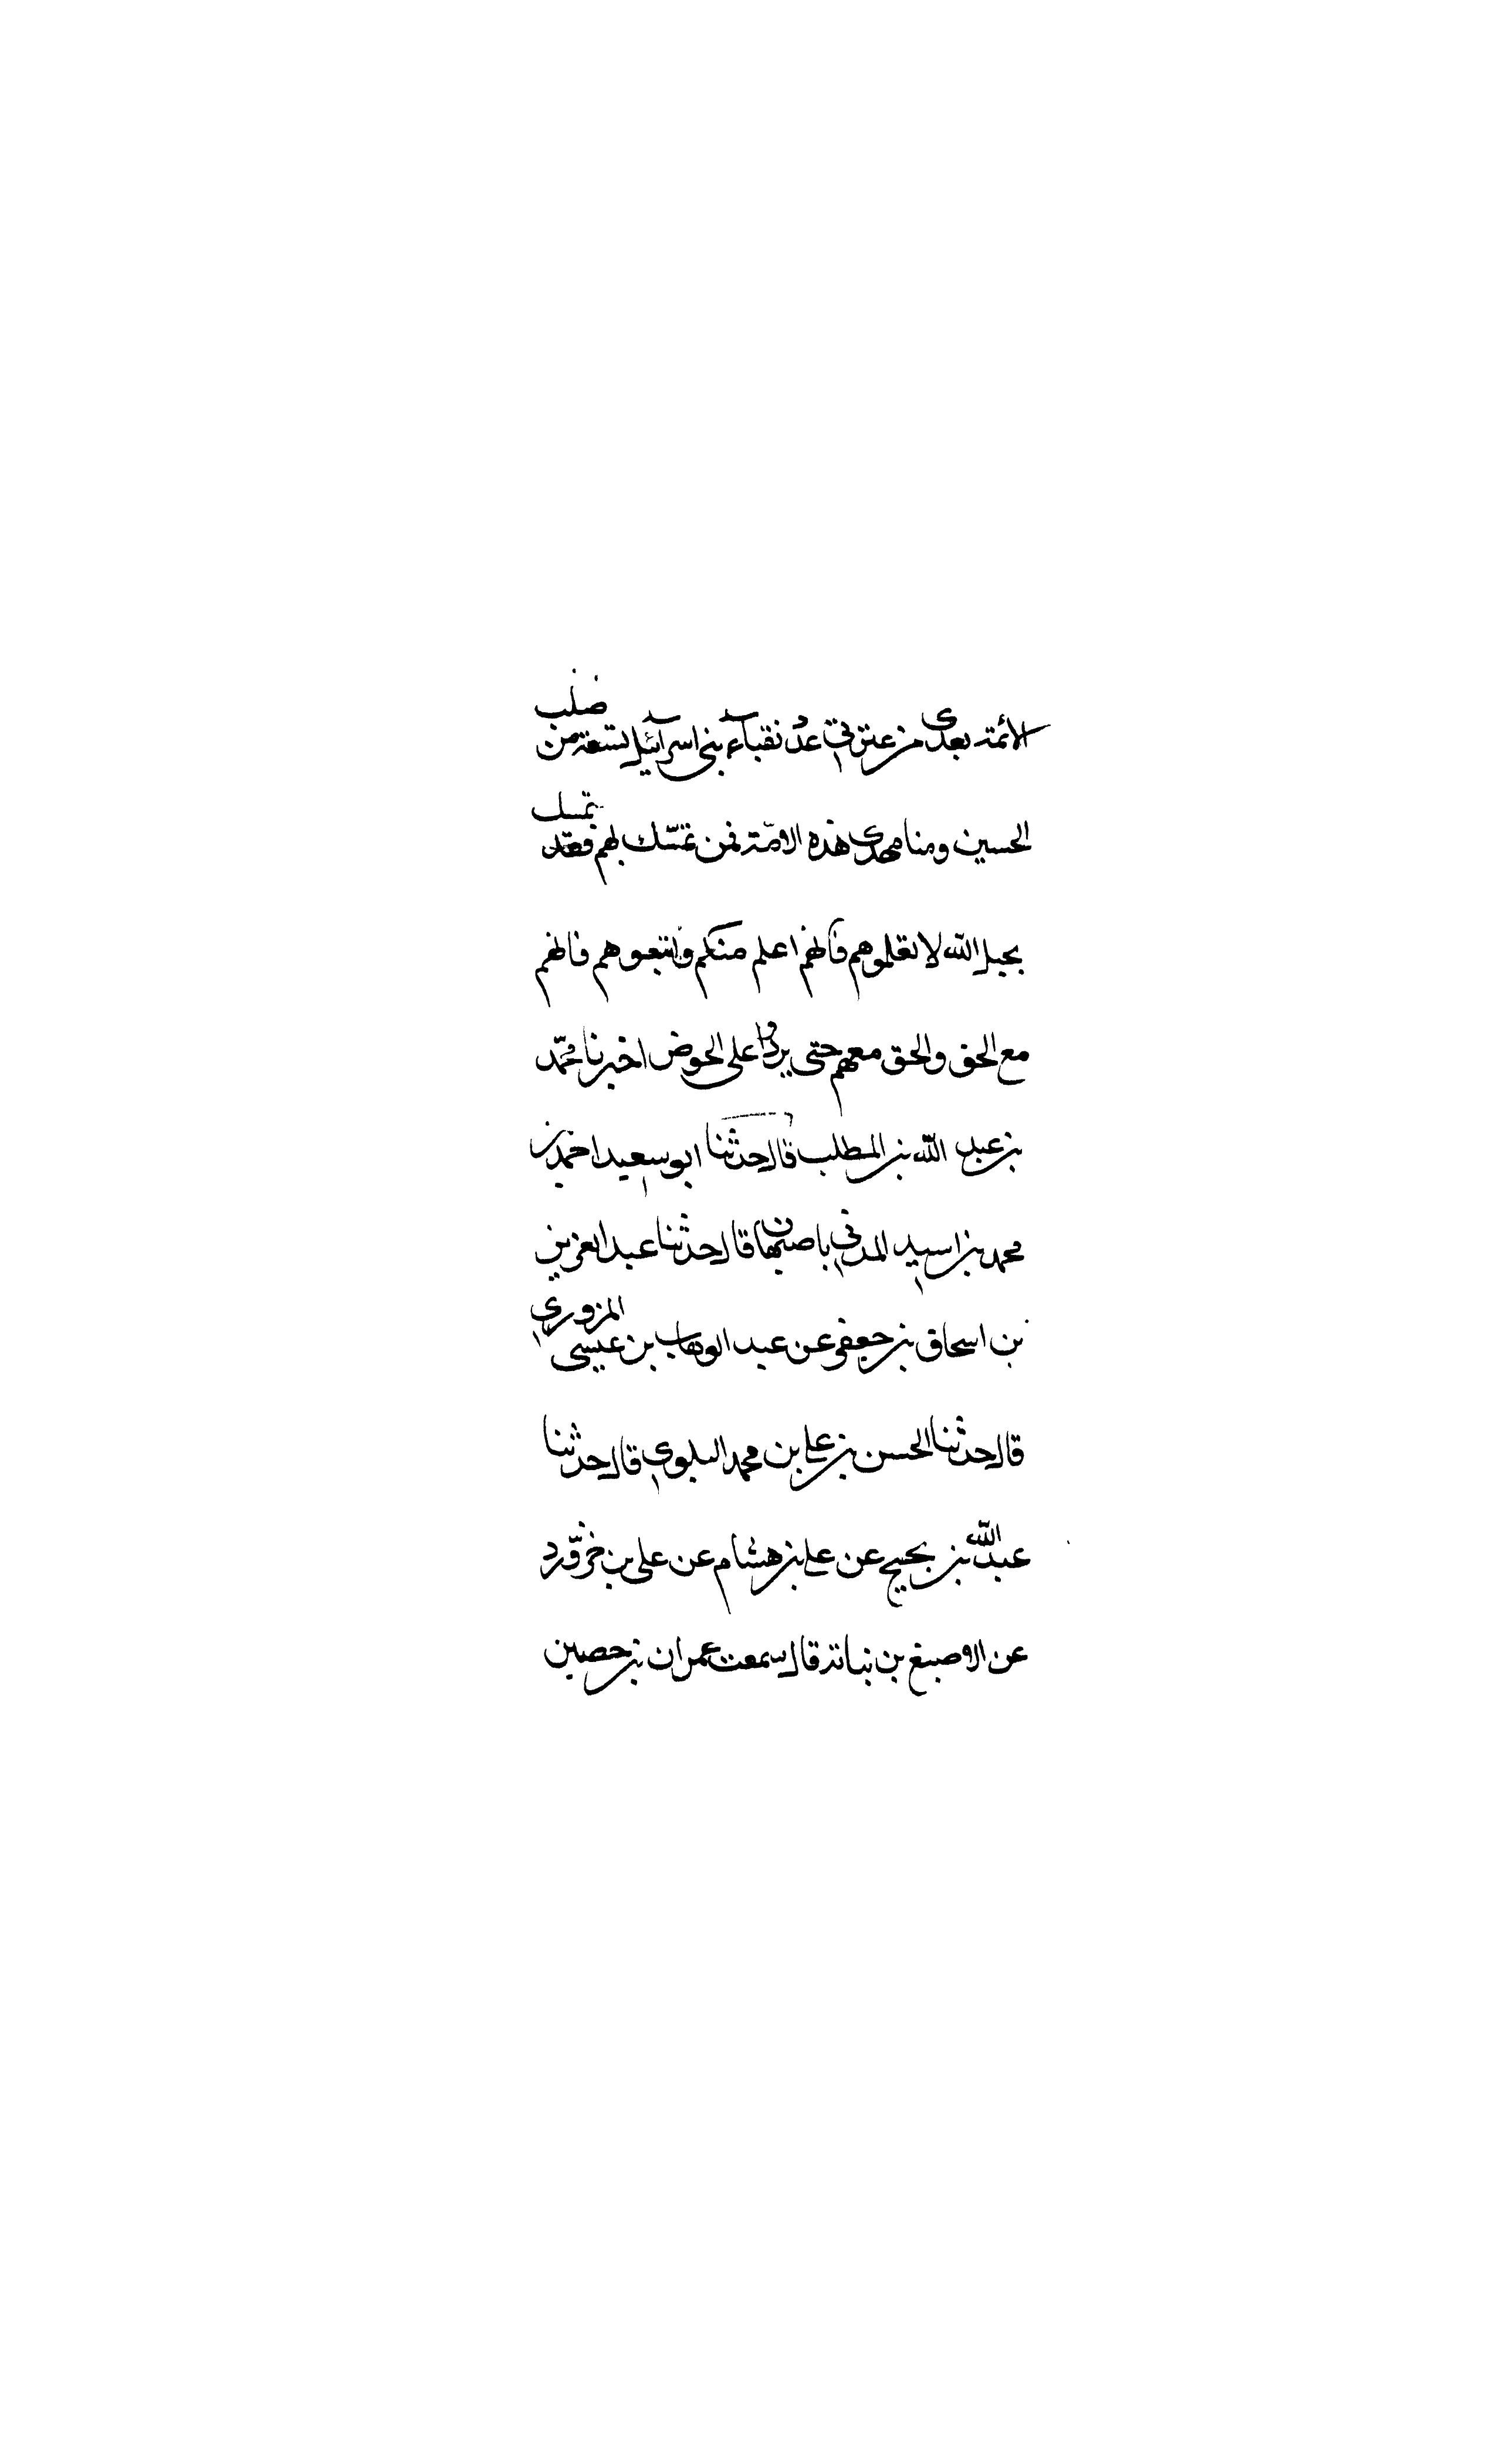 الائمة بعدى من عترتي عدد نقباء بنى اسرائيل تسعة من صلب
الحسين ومنا مهدى هذه الامّة فمن تمسّك بهم فقد تمسك
بحبل الله لا تعلموهم فانهم اعلم منكم واتبعوهم فانهم
مع الحق والحق معهم حتى يردوا على الحوض اخبرنا محمّد
بن عبد الله بن المطلب قال حدثنا ابو سعيد احمد بن
محمد بن اسيد المدني باصبهان قال حدثنا عبد العزيز
بن اسحاق بن جعفر عن عبد الوهاب بن عيسى المزوري
قال حدثنا الحسن بن علي بن محمد البلوي قال حدثنا
عبد الله بن يحيي عن علي بن هشام عن علي بن
عن الاصبغ بن نباتة قال سمعت عمران بن حصين